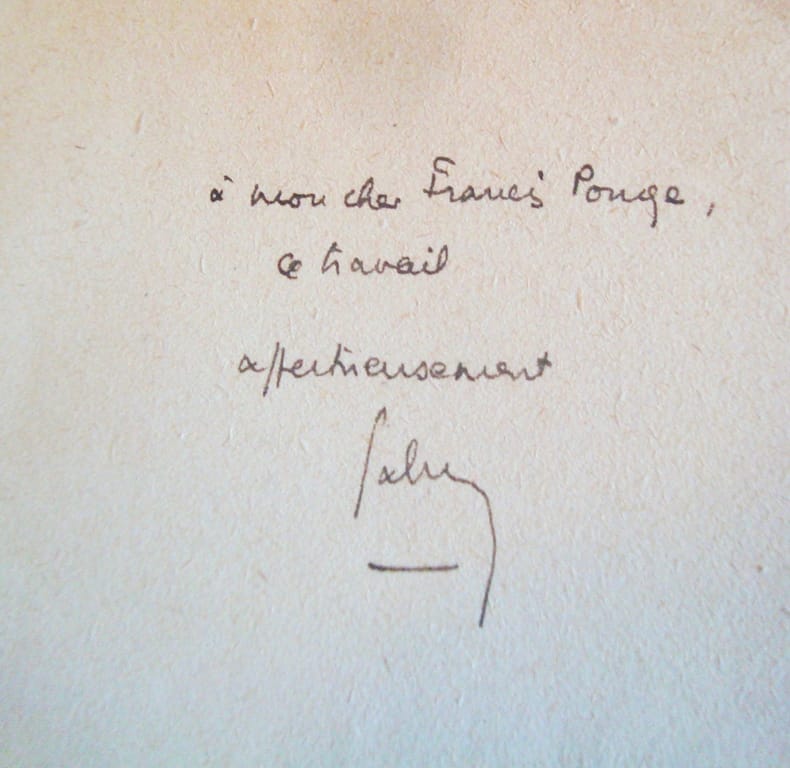 à mon cher Francis Ponge,
ce travail
affectueusement